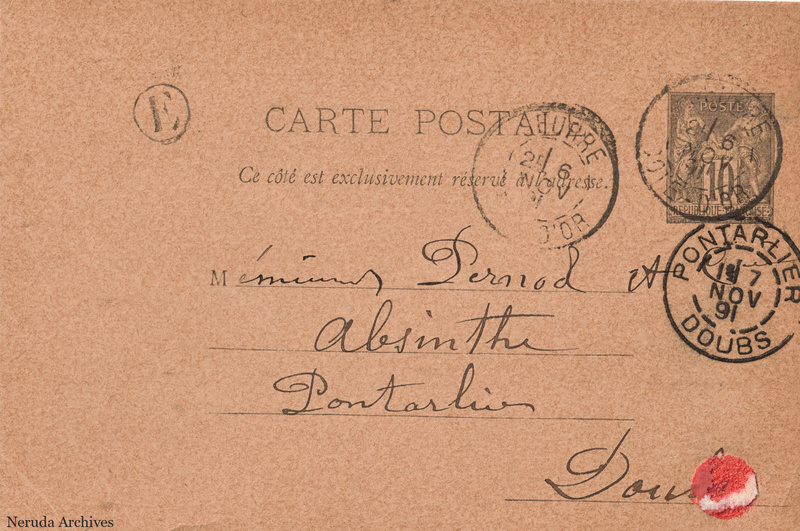 E
CARTE POSTALE
Ce côté est exclusivement réservé à l'adresse.
POSTE
10
REPUBLIQUE FRANÇAISE
2E
6
NOV
91
D'OR
6
NOV
PONTARLIER
1E
7
NOV
91
DOUBS
M
Pernod
Absinthe
Pontarlier
Doubs
Neruda Archives